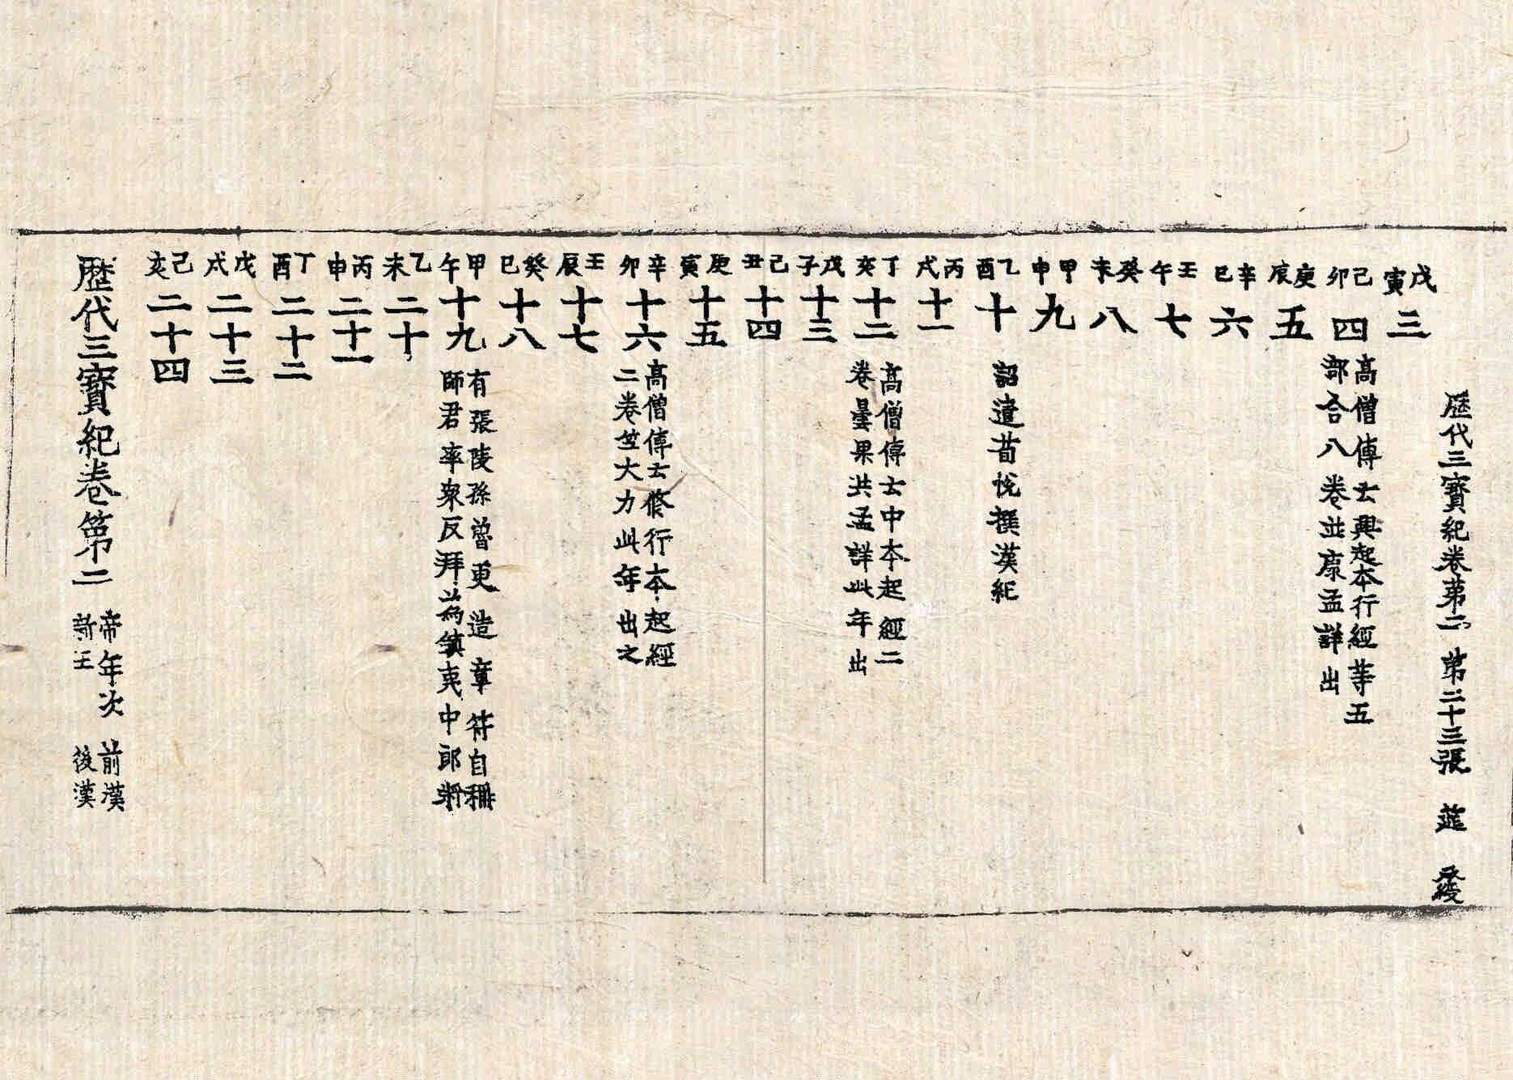 歷代三寶紀卷第二 第二十三張 筵
戊寅 三
己卯 四 高僧傳云興起本行經等五
部合八卷並康孟詳出
庚辰 五
辛巳 六
壬午 七
癸未 八
甲申 九
乙酉 十 詔遣荀悅撰漢紀
丙戌 十一
丁亥 十二 高僧傳云中本起經二
卷曇果共孟詳此年出
戊子 十三
己丑 十四
庚寅 十五
辛卯 十六 高僧傳云修行本起經
二卷竺大力此年出之
壬辰 十七
癸巳 十八
甲午 十九 有張陵孫曾更造章符自稱
師君率衆反拜爲鎮夷中郎將
乙未 二十
丙申 二十一
丁酉 二十二
戊戌 二十三
己亥 二十四
歷代三寶紀卷第二 帝年次 前漢
新王 後漢